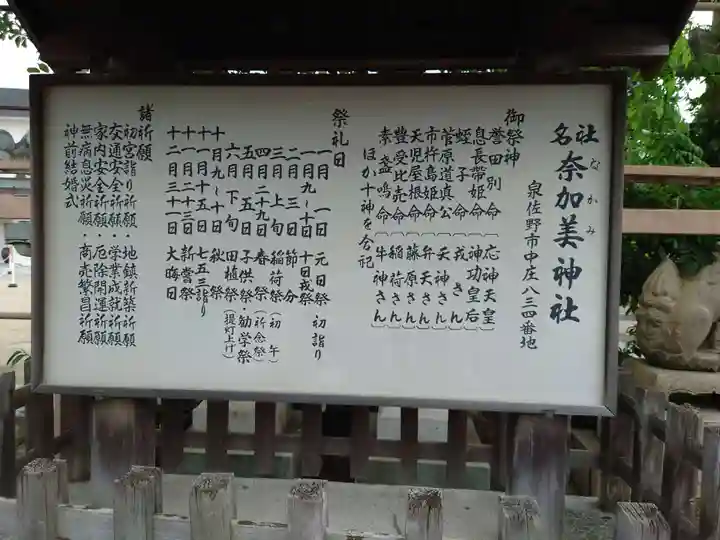 社名
奈加美神社
なかみ
泉佐野市中庄八三四番地
御祭神
誉田別命(応神天皇)
息長帯姫命(神功皇后)
蛭子命(戎さん)
菅原道真公(天神さん)
市杵島姫命(弁天さん)
天児屋根命(藤原さん)
豊受比売命(稲荷さん)
素盞嗚命(牛神さん)
ほか十神を合祀
祭礼日
一月一日 元日祭 初詣り
一月九〜十日 十日戎祭
二月三日 節分
三月上旬 稲荷祭(初午)
四月二十九日 春祭(祈念祭)
五月五日 子供祭・勧学祭
六月下旬 田植祭(提灯上げ)
十月九〜十日 秋祭
十一月十五日 七五三詣り
十一月二十三日 新嘗祭
十二月三十一日 大晦日
諸祈願
初宮詣り祈願・地鎮新築祈願
交通安全祈願・学業成就祈願
家内安全祈願・厄除開運祈願
無病息災祈願・商売繁昌祈願
神前結婚式